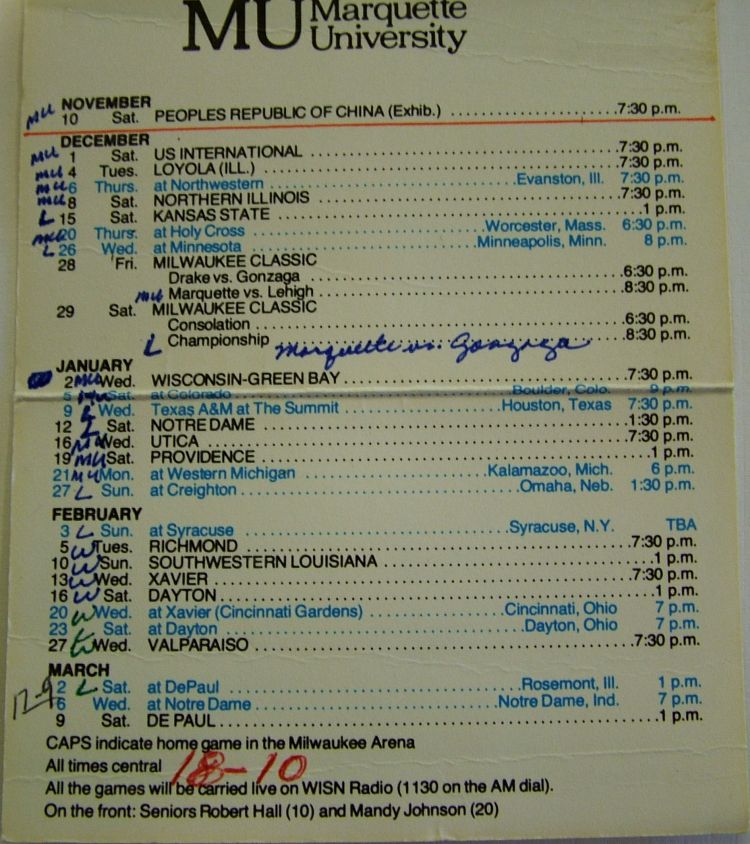 MU Marquette
University
NOVEMBER
MU 10 Sat. PEOPLES REPUBLIC OF CHINA (Exhib.) ........................7:30 p.m.
DECEMBER
MU 1 Sat. US INTERNATIONAL ........................7:30 p.m.
MU 4 Tues. LOYOLA (ILL.) ........................7:30 p.m.
MU 6 Thurs. at Northwestern ........................Evanston, Ill. 7:30 p.m.
MU 8 Sat. NORTHERN ILLINOIS ........................7:30 p.m.
L 15 Sat. KANSAS STATE ........................1 p.m.
MU 20 Thurs. at Holy Cross ........................Worcester, Mass. 6:30 p.m.
L 26 Wed. at Minnesota ........................Minneapolis, Minn. 8 p.m.
28 Fri. MILWAUKEE CLASSIC
Drake vs. Gonzaga ........................6:30 p.m.
MU Marquette vs. Lehigh ........................8:30 p.m.
29 Sat. MILWAUKEE CLASSIC
Consolation ........................6:30 p.m.
L Championship Marquette vs. Gonzaga ........................8:30 p.m.
JANUARY
2 MU Wed. WISCONSIN-GREEN BAY ........................7:30 p.m.
5 MU Sat. at Colorado ........................Boulder, Colo. 9 p.m.
9 L Wed. Texas A&M at The Summit ........................Houston, Texas 7:30 p.m.
12 L Sat. NOTRE DAME ........................1:30 p.m.
16 MU Wed. UTICA ........................7:30 p.m.
19 MU Sat. PROVIDENCE ........................1 p.m.
21 MU Mon. at Western Michigan ........................Kalamazoo, Mich. 6 p.m.
27 L Sun. at Creighton ........................Omaha, Neb. 1:30 p.m.
FEBRUARY
3 L Sun. at Syracuse ........................Syracuse, N.Y. TBA
5 W Tues. RICHMOND ........................7:30 p.m.
10 W Sun. SOUTHWESTERN LOUISIANA ........................1 p.m.
13 W Wed. XAVIER ........................7:30 p.m.
16 W Sat. DAYTON ........................1 p.m.
20 W Wed. at Xavier (Cincinnati Gardens) ........................Cincinnati, Ohio 7 p.m.
23 L Sat. at Dayton ........................Dayton, Ohio 7 p.m.
27 W Wed. VALPARAISO ........................7:30 p.m.
MARCH
2 L Sat. at DePaul ........................Rosemont, Ill. 1 p.m.
17-9 6 Wed. at Notre Dame ........................Notre Dame, Ind. 7 p.m.
9 Sat. DE PAUL ........................1 p.m.
CAPS indicate home game in the Milwaukee Arena
All times central 18-10
All the games will be carried live on WISN Radio (1130 on the AM dial).
On the front: Seniors Robert Hall (10) and Mandy Johnson (20)